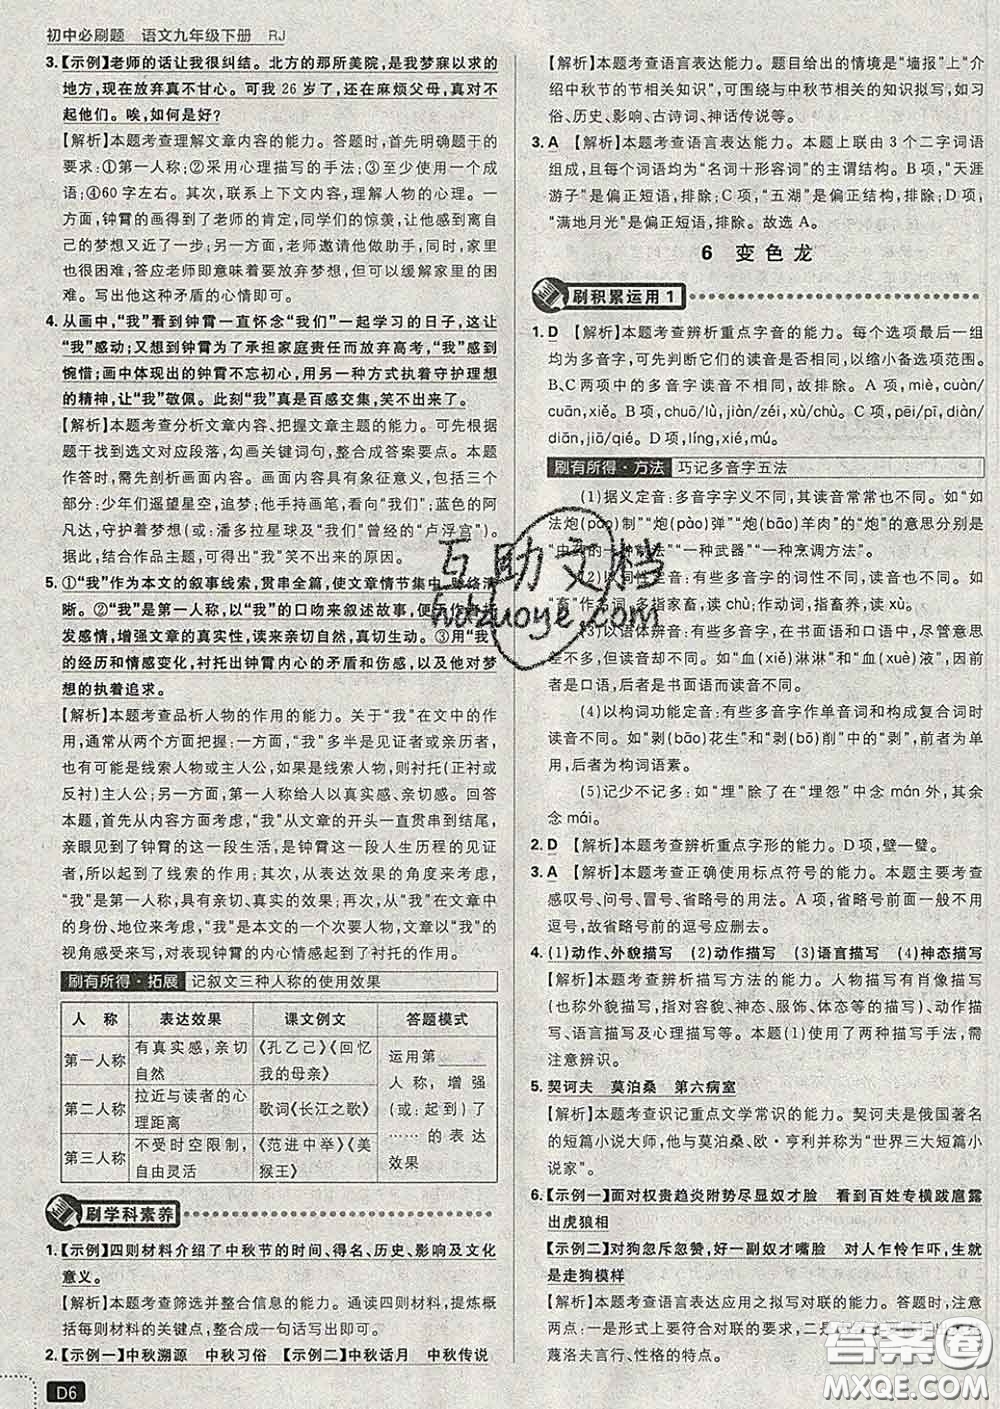 初中必刷题　语文九年级下册　RJ
3.【示例】老师的话让我很纠结。北方的那所美院,是我梦寐以求的
地方,现在放弃真不甘心。可我26岁了,还在麻烦父母,真对不
起他们。唉,如何是好?
【解析】本题考查理解文章内容的能力。答题时,首先明确题干的
要求:①第一人称;②采用心理描写的手法;③至少使用一个成
语;④60字左右。其次,联系上下文内容,理解人物的心理。一
方面,钟霄的画得到了老师的肯定,同学们的惊羡,让他感到自己
的梦想又近了一步;另一方面,老师邀请他做助手,同时,家里也
很困难,答应老师即意味着要放弃梦想,但可以缓解家里的困
难。写出他这种矛盾的心情即可。
4.从画中,“我”看到钟霄一直怀念“我们”一起学习的日子,这让
“我”感动;又想到钟霄为了承担家庭责任而放弃高考,“我”感到
惋惜;画中体现出的钟霄不忘初心,用另一种方式执着守护理想
的精神,让“我”敬佩。此刻“我”真是百感交集,笑不出来了。
【解析】本题考查分析文章内容、把握文章主题的能力。可先根据
题干找到选文对应段落,勾画关键词句,整合成答案要点。本题
作答时,需先剖析画面内容。画面内容含义丰富,包括三个
部分:少年们遥望星空,追梦;他手持画笔,看向“我们”;蓝色的阿
凡达,守护着梦想(或:潘多拉星球及“我们”曾经的“卢浮宫”)。
据此,结合作品主题,可得出“我”笑不出来的原因。
5.①“我”作为本文的叙事线索,贯串全篇,使文章情节集中,脉络清
晰。②“我”是第一人称,以“我”的口吻来叙述故事,便于作者抒
发感情,增强文章的真实性,读来亲切自然,真切生动。③用“我”
的经历和情感变化,衬托出钟霄内心的矛盾和伤感,以及他对梦
想的执着追求。
【解析】本题考查品析人物的作用的能力。关于“我”在文中的作
用,通常从两个方面把握:一方面,“我”多半是见证者或亲历者,
也有可能是线索人物或主人公,如果是线索人物,则衬托(正衬或
反衬)主人公;另一方面,第一人称给人以真实感、亲切感。回答
本题,首先从内容方面考虑,“我”从文章的开头一直贯串到结尾,
亲眼目睹了钟霄的这一段生活,是钟霄这一段人生历程的见证
者,所以起到了线索的作用;其次,从表达效果的角度来考虑,
“我”是第一人称,具有亲切、真实的效果;再次,从“我”在文章中
的身份、地位来考虑,“我”是本文的一个次要人物,本文以“我”的
视角感受来写,对表现钟霄的内心情感起到了衬托的作用。
刷有所得·拓展　记叙文三种人称的使用效果
人　称　表达效果　课文例文　答题模式
第一人称　有真实感,亲切自然　《孔乙己》《回忆我的母亲》
第二人称　拉近与读者的心理距离　歌词《长江之歌》
第三人称　不受时空限制,自由灵活　《范进中举》《美猴王》
运用第____人称,增强(或:起到)了……的表达效果
刷学科素养
1.【示例】四则材料介绍了中秋节的时间、得名、历史、影响及文化
意义。
【解析】本题考查筛选并整合信息的能力。通读四则材料,提炼概
括每则材料的关键点,整合成一句话写出即可。
2.【示例一】中秋溯源　中秋习俗　【示例二】中秋话月　中秋传说
D6
【解析】本题考查语言表达能力。题目给出的情境是“墙报”上“介
绍中秋节的节相关知识”,可围绕与中秋节相关的知识拟写,如习
俗、历史、影响、古诗词、神话传说等。
3. A　【解析】本题考查语言表达能力。本题上联由3个二字词语
组成,且每个词语均为“名词+形容词”的主谓结构。B项,“天涯
游子”是偏正短语,排除;C项,“五湖”是偏正结构,排除;D项,
“满地月光”是偏正短语,排除。故选A。
6　变色龙
刷积累运用1
1. D　【解析】本题考查辨析重点字音的能力。每个选项最后一组
均为多音字,可先判断它们的读音是否相同,以缩小备选项范围。
B、C两项中的多音字读音不相同,故排除。A项,miè,cuàn/
cuān,xiě。B项,chuō/lù,jiàn/zéi,xù/chù。C项,pēi/pī,diàn/
diān,jiā/gāi。D项,líng,xié,mú。
刷有所得·方法　巧记多音字五法
(1)据义定音:多音字字义不同,其读音常常也不同。如“如
法炮(páo)制”“炮(pào)弹”“炮(bāo)羊肉”的“炮”的意思分别是
“中药的一种制法”“一种武器”“一种烹调方法”。
(2)以词性定音:有些多音字的词性不同,读音也不同。如
“畜”作名词,多指家畜,读chù;作动词,指畜养,读xù。
(3)以语体辨音:有些多音字,在书面语和口语中,尽管意思
差不多,但读音不同。如“血(xiě)淋淋”和“血(xuè)液”,因前
者是口语,后者是书面语而读音不同。
(4)以构词功能定音:有些多音字作单音词和构成复合词时
读音不同。如“剥(bāo)花生”和“剥(bō)削”中的“剥”,前者为单
音词,后者为构词语素。
(5)记少不记多:如“埋”除了在“埋怨”中念mán外,其余
念mái。
2. D　【解析】本题考查辨析重点字形的能力。D项,壁—璧。
3. A　【解析】本题考查正确使用标点符号的能力。本题主要考查
感叹号、问号、冒号、省略号的用法。A项,省略号前面一般不用
逗号,故省略号前的逗号应删去。
4.(1)动作、外貌描写　(2)动作描写　(3)语言描写　(4)神态描写
【解析】本题考查辨析描写方法的能力。人物描写有肖像描写
(亦称外貌描写,包括容貌、神态、服饰、体态等的描写)、动作描
写、语言描写及心理描写等。本题(1)使用了两种描写手法,需
注意辨识。
5.契诃夫　莫泊桑　第六病室
【解析】本题考查识记重点文学常识的能力。契诃夫是俄国著名
的短篇小说大师,他与莫泊桑、欧·亨利并称为“世界三大短篇小
说家”。
6.【示例一】面对权贵趋炎附势尽显奴才脸　看到百姓专横跋扈露
出虎狼相
【示例二】对狗忽斥忽赞,好一副奴才嘴脸　对人乍怜乍吓,生就
是走狗模样
【解析】本题考查语言表达应用之拟写对联的能力。答题时,注意
两点:一是形式上要符合对联的要求,二是
蔑洛夫言行、性格的特点。
互助文档
hdzuoye.com
答案圈
MXQE.COM